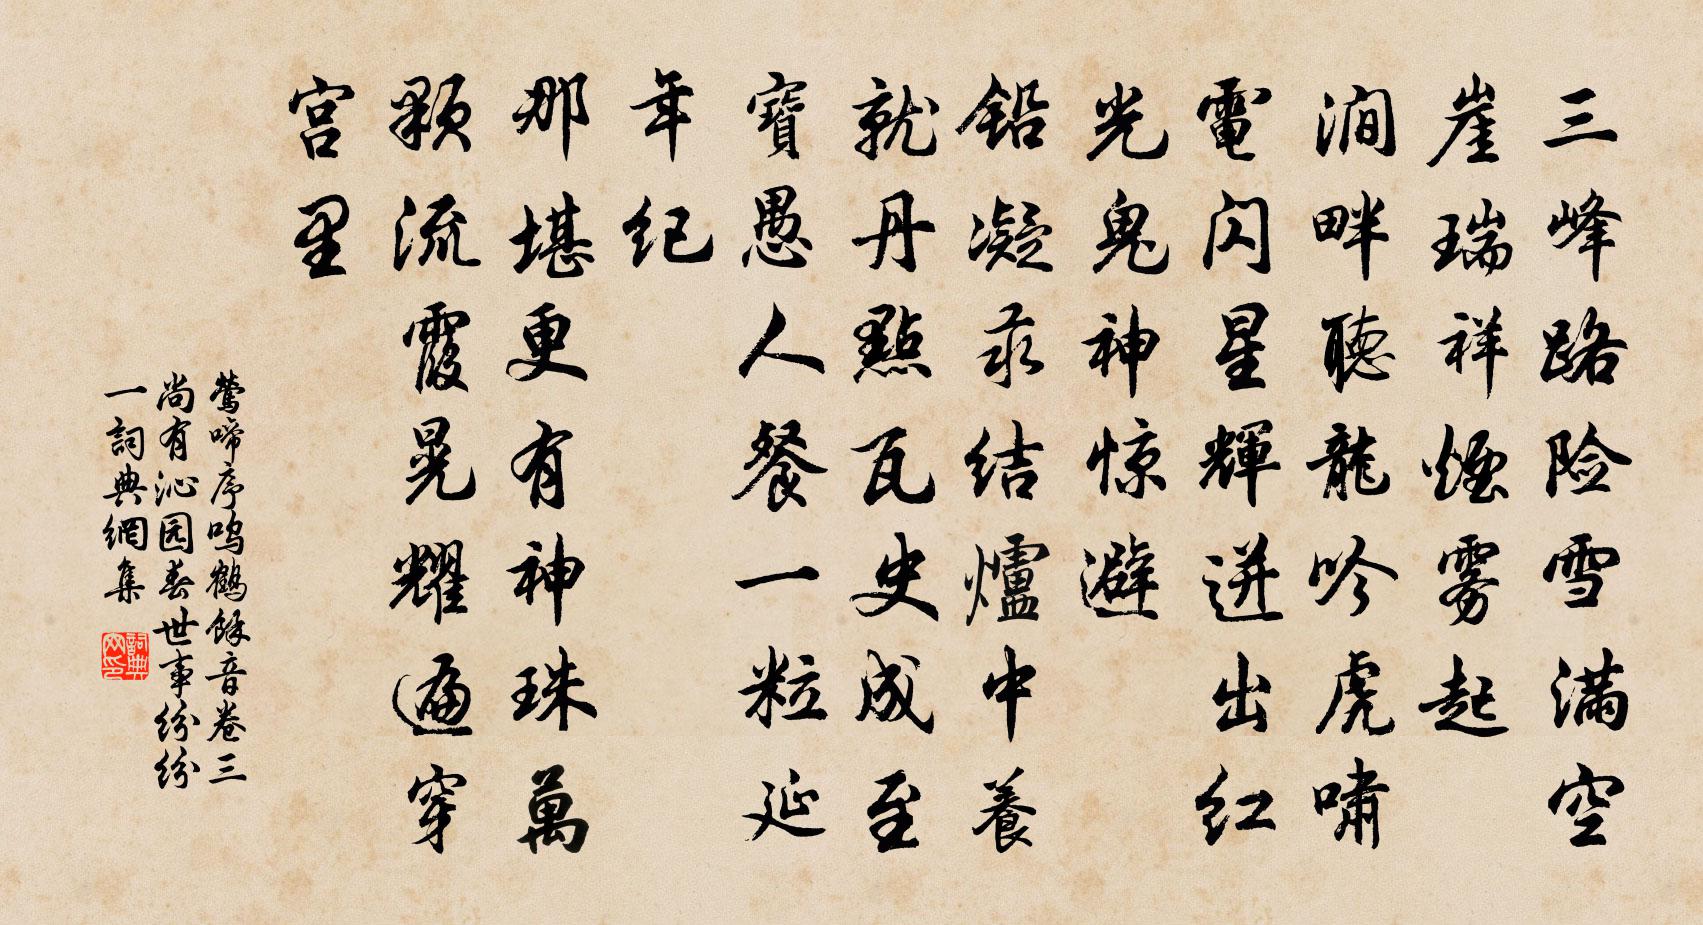 三峰路险雪满空
崖瑞祥煙雾起
澗畔聽龍吟虎啸
電闪星輝迸出红
光鬼神惊避
铅凝汞结爐中養
就丹點瓦史成至
寶愚人餐一粒延
年纪
那堪更有神珠萬
颗流霞晃耀遍穿
宫里
莺啼序鸣鹤餘音卷三
尚有沁园春世事纷纷
一詞典網集